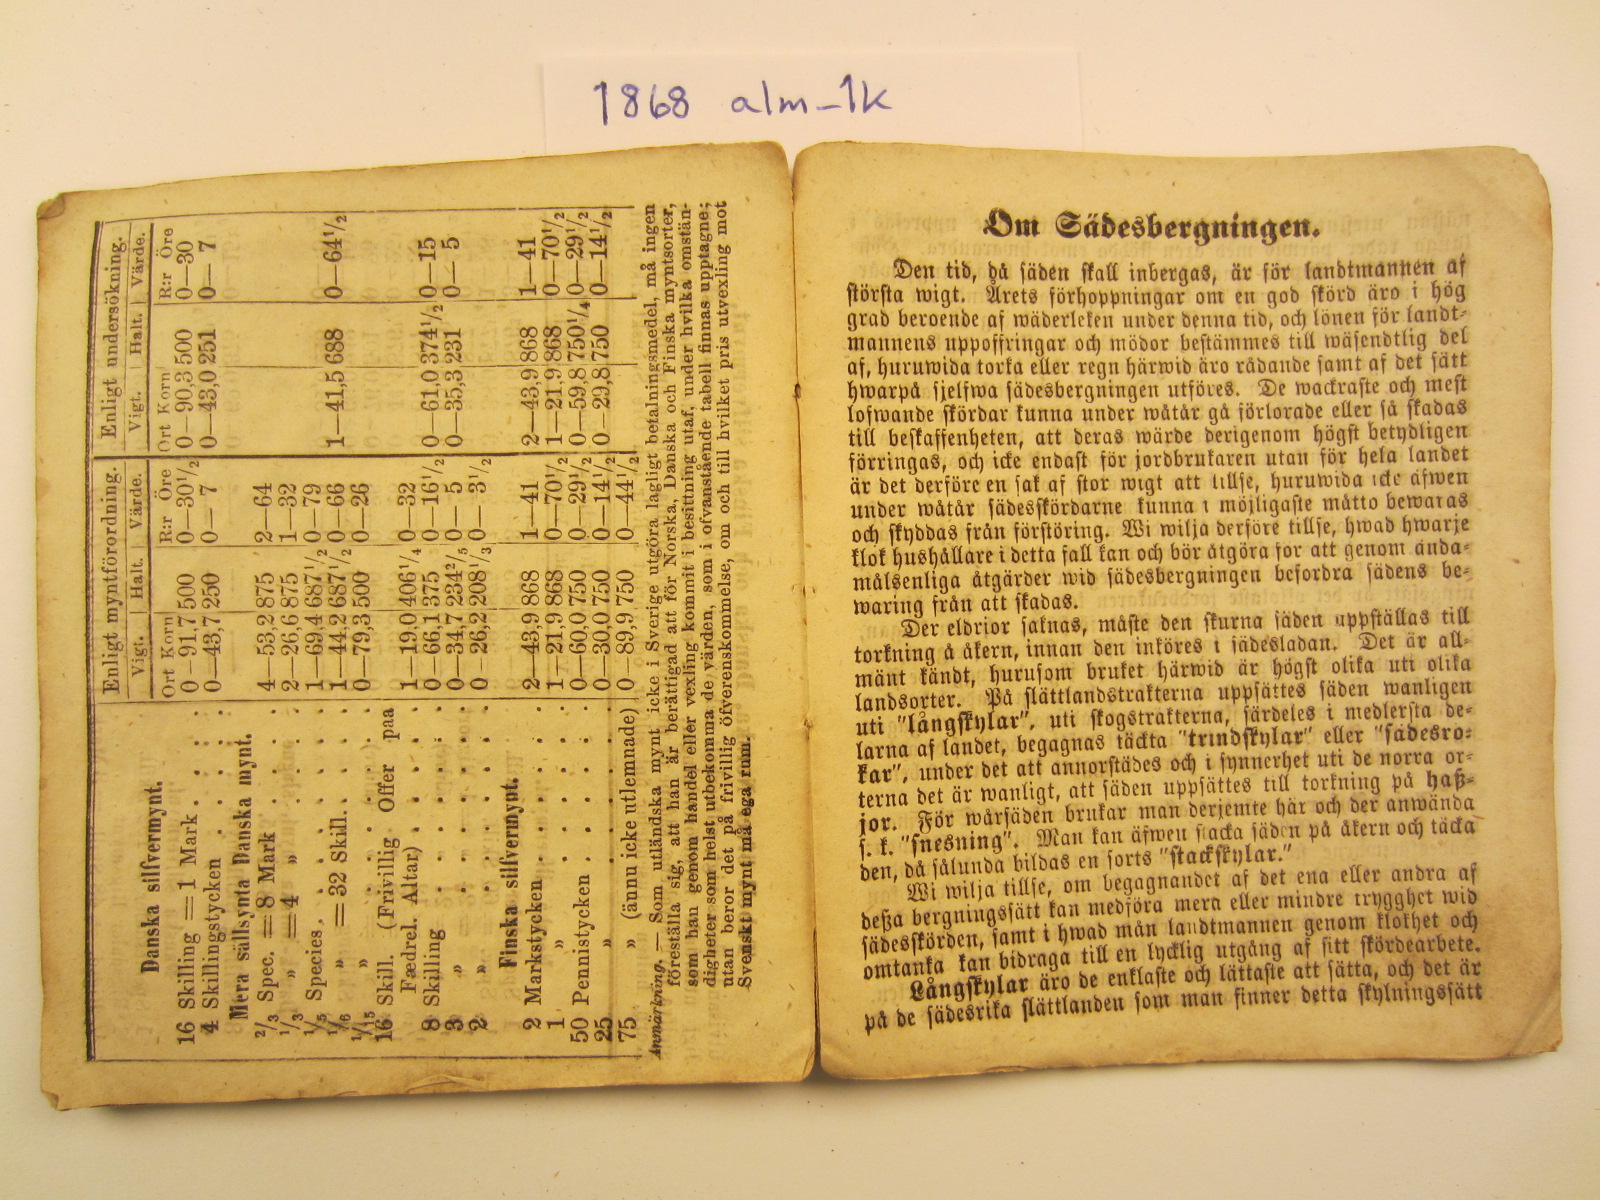 1868 alm-1k
Enligt myntförordning. Enligt undersökning.
Vigt. Halt. Värde. Vigt. Halt. Värde.
Danska silfvermynt. Ort Korn R:r Öre Ort Korn R:r Öre
16 Skilling = 1 Mark . . . 0—91,7 500 0—30½ 0—90,3 500 0—30
4 Skillingstycken . . . 0—43,7 250 0— 7 0—43,0 251 0— 7
Mera sällsynta Danska mynt.
2/3 Spec. = 8 Mark . . . 4—53,2 875 2—64
1/3 „ = 4 „ . . . 2—26,6 875 1—32
1/5 Species . . . 1—69,4 687½ 0—79
1/6 „ = 32 Skill. . . . 1—44,2 687½ 0—66 1—41,5 688 0—64½
1/15 „ . . . 0—79,3 500 0—26
16 Skill. (Frivillig Offer paa
Fædrel. Altar) . 1—19,0 406¼ 0—32
8 Skilling . . . 0—66,1 375 0—16½ 0—61,0 374½ 0—15
3 „ . . . 0—34,7 234²/₅ 0— 5 0—35,3 231 0— 5
2 „ . . . 0—26,2 208⅓ 0— 3½
Finska silfvermynt.
2 Markstycken . . . 2—43,9 868 1—41 2—43,9 868 1—41
1 „ . . . 1—21,9 868 0—70½ 1—21,9 868 0—70½
50 Pennistycken . . . 0—60,0 750 0—29½ 0—59,8 750¼ 0—29½
25 „ . . . 0—30,0 750 0—14½ 0—29,8 750 0—14½
75 „ (ännu icke utlemnade) 0—89,9 750 0—44½
Anmärkning. — Som utländska mynt icke i Sverige utgöra lagligt betalningsmedel, må ingen
föreställa sig, att han är berättigad att för Norska, Danska och Finska myntsorter,
som han genom handel eller vexling kommit i besittning utaf, under hvilka omstän-
digheter som helst utbekomma de värden, som i ofvanstående tabell finnas upptagne;
utan beror det på frivillig öfverenskommelse, om och till hvilket pris utvexling mot
Svenskt mynt må ega rum.
Om Sädesbergningen.
Den tid, då säden skall inbergas, är för landtmannen af
största wigt. Årets förhoppningar om en god skörd äro i hög
grad beroende af wäderleken under denna tid, och lönen för landt-
mannens uppoffringar och mödor bestämmes till wäsendtlig del
af, huruwida torka eller regn härwid äro rådande samt af det sätt
hwarpå sjelfwa sädesbergningen utföres. De wackraste och mest
lofwande skördar kunna under wåtår gå förlorade eller så skadas
till beskaffenheten, att deras wärde derigenom högst betydligen
förringas, och icke endast för jordbrukaren utan för hela landet
är det derföre en sak af stor wigt att tillse, huruwida icke äfwen
under wåtår sädesskördarne kunna i möjligaste måtto bewaras
och skyddas från förstöring. Wi wilja derföre tillse, hwad hwarje
klok hushållare i detta fall kan och bör åtgöra för att genom ända-
målsenliga åtgärder wid sädesbergningen befordra sädens be-
waring från att skadas.
Der eldrior saknas, måste den skurna säden uppställas till
torkning å åkern, innan den inköres i sädesladan. Det är all-
mänt kändt, hurusom bruket härwid är högst olika uti olika
landsorter. På slättlandstrakterna uppsättes säden wanligen
uti "långskylar", uti skogstrakterna, särdeles i medlersta de-
larna af landet, begagnas täckta "trindskylar" eller "sädesro-
kar", under det att annorstädes och i synnerhet uti de norra or-
terna det är wanligt, att säden uppsättes till torkning på haß-
jor. För wårsäden brukar man derjemte här och der anwända
s. k. "snesning". Man kan äfwen stacka säden på åkern och täcka
den, då sålunda bildas en sorts "stackskylar."
Wi wilja tillse, om begagnandet af det ena eller andra af
deßa bergningssätt kan medföra mera eller mindre trygghet wid
sädesskörden, samt i hwad mån landtmannen genom klokhet och
omtanka kan bidraga till en lycklig utgång af sitt skördearbete.
Långskylar äro de enklaste och lättaste att sätta, och det är
på de sädesrika slättlanden som man finner detta skylningssätt